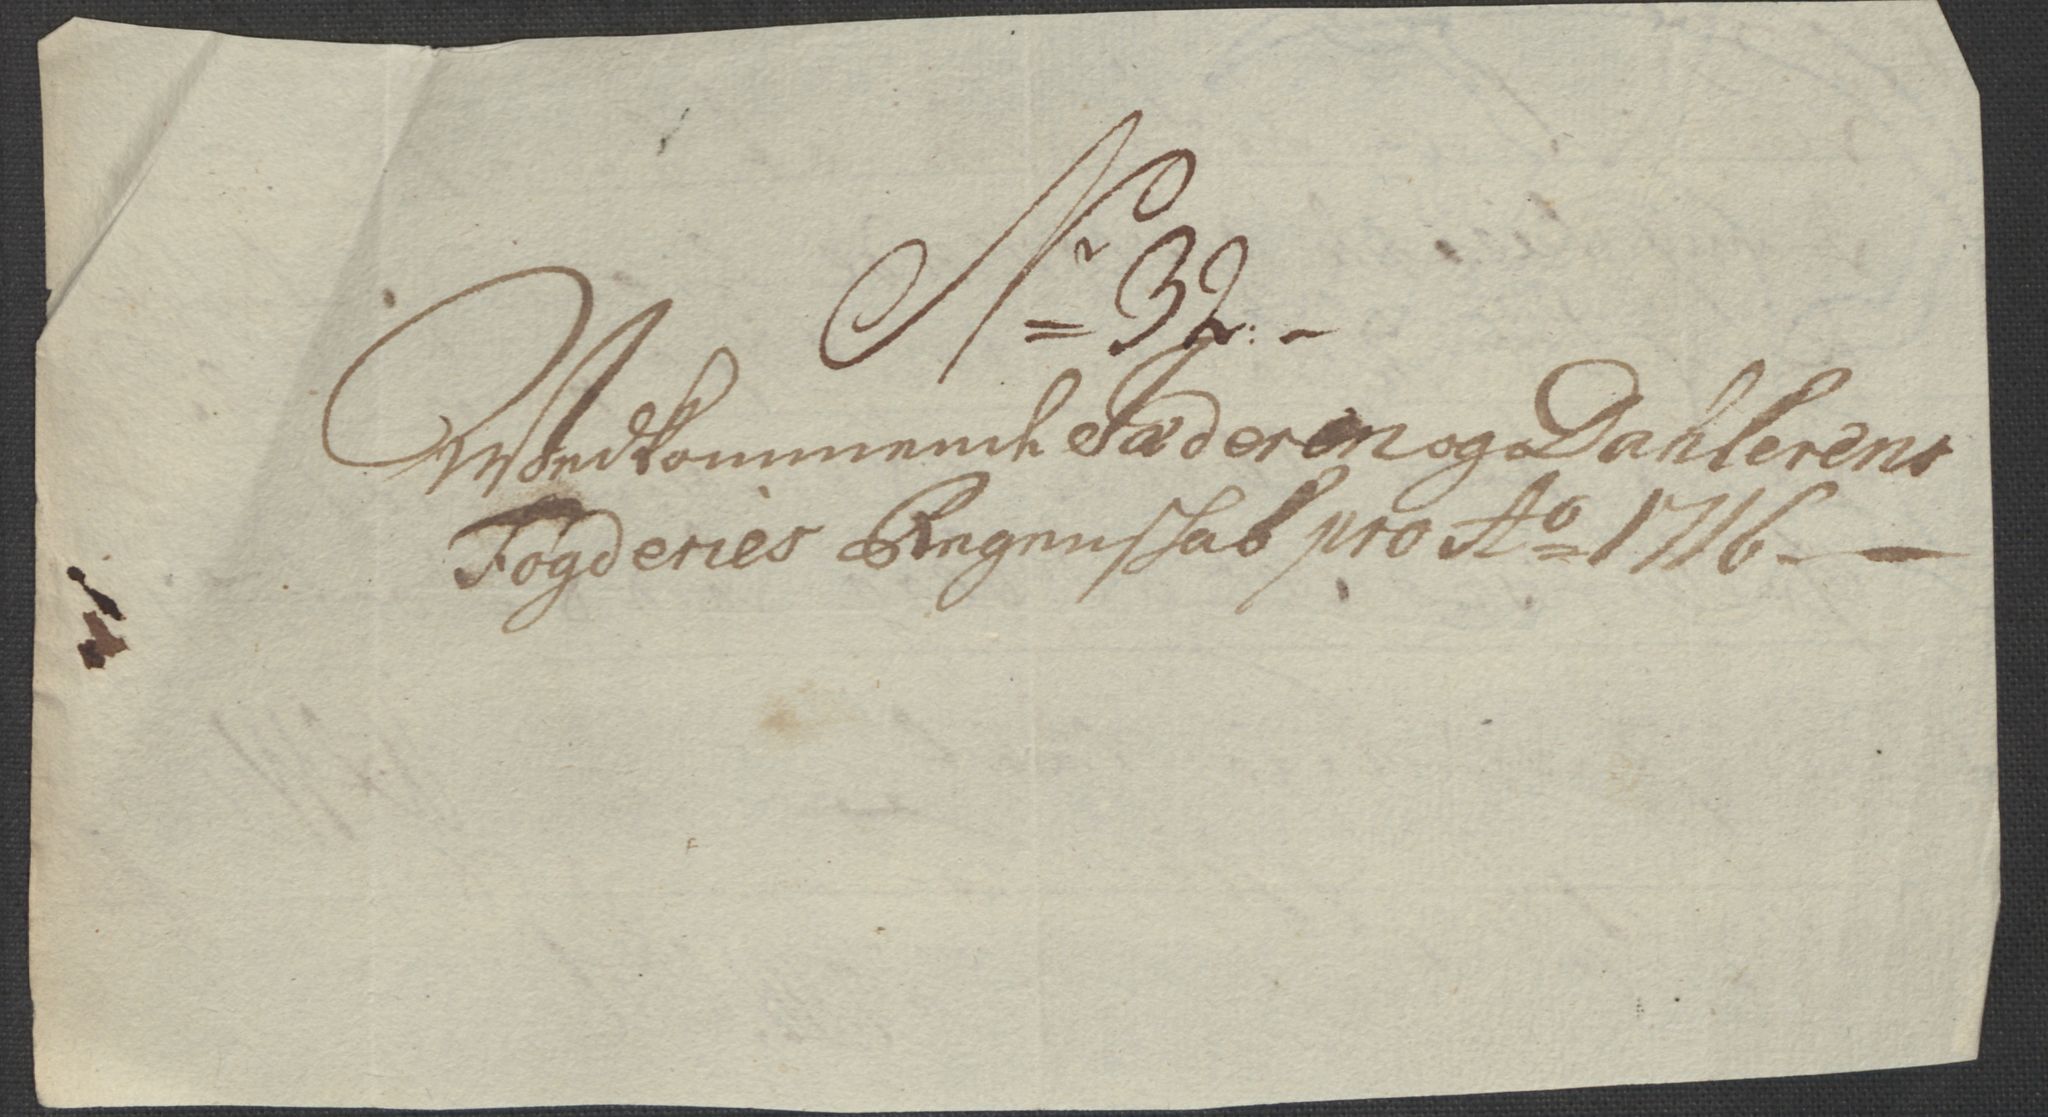 Nr 32.-
Wedkommende Jæderen og Dahlerens
Fogderies Regenskab pro Ao 1716 -